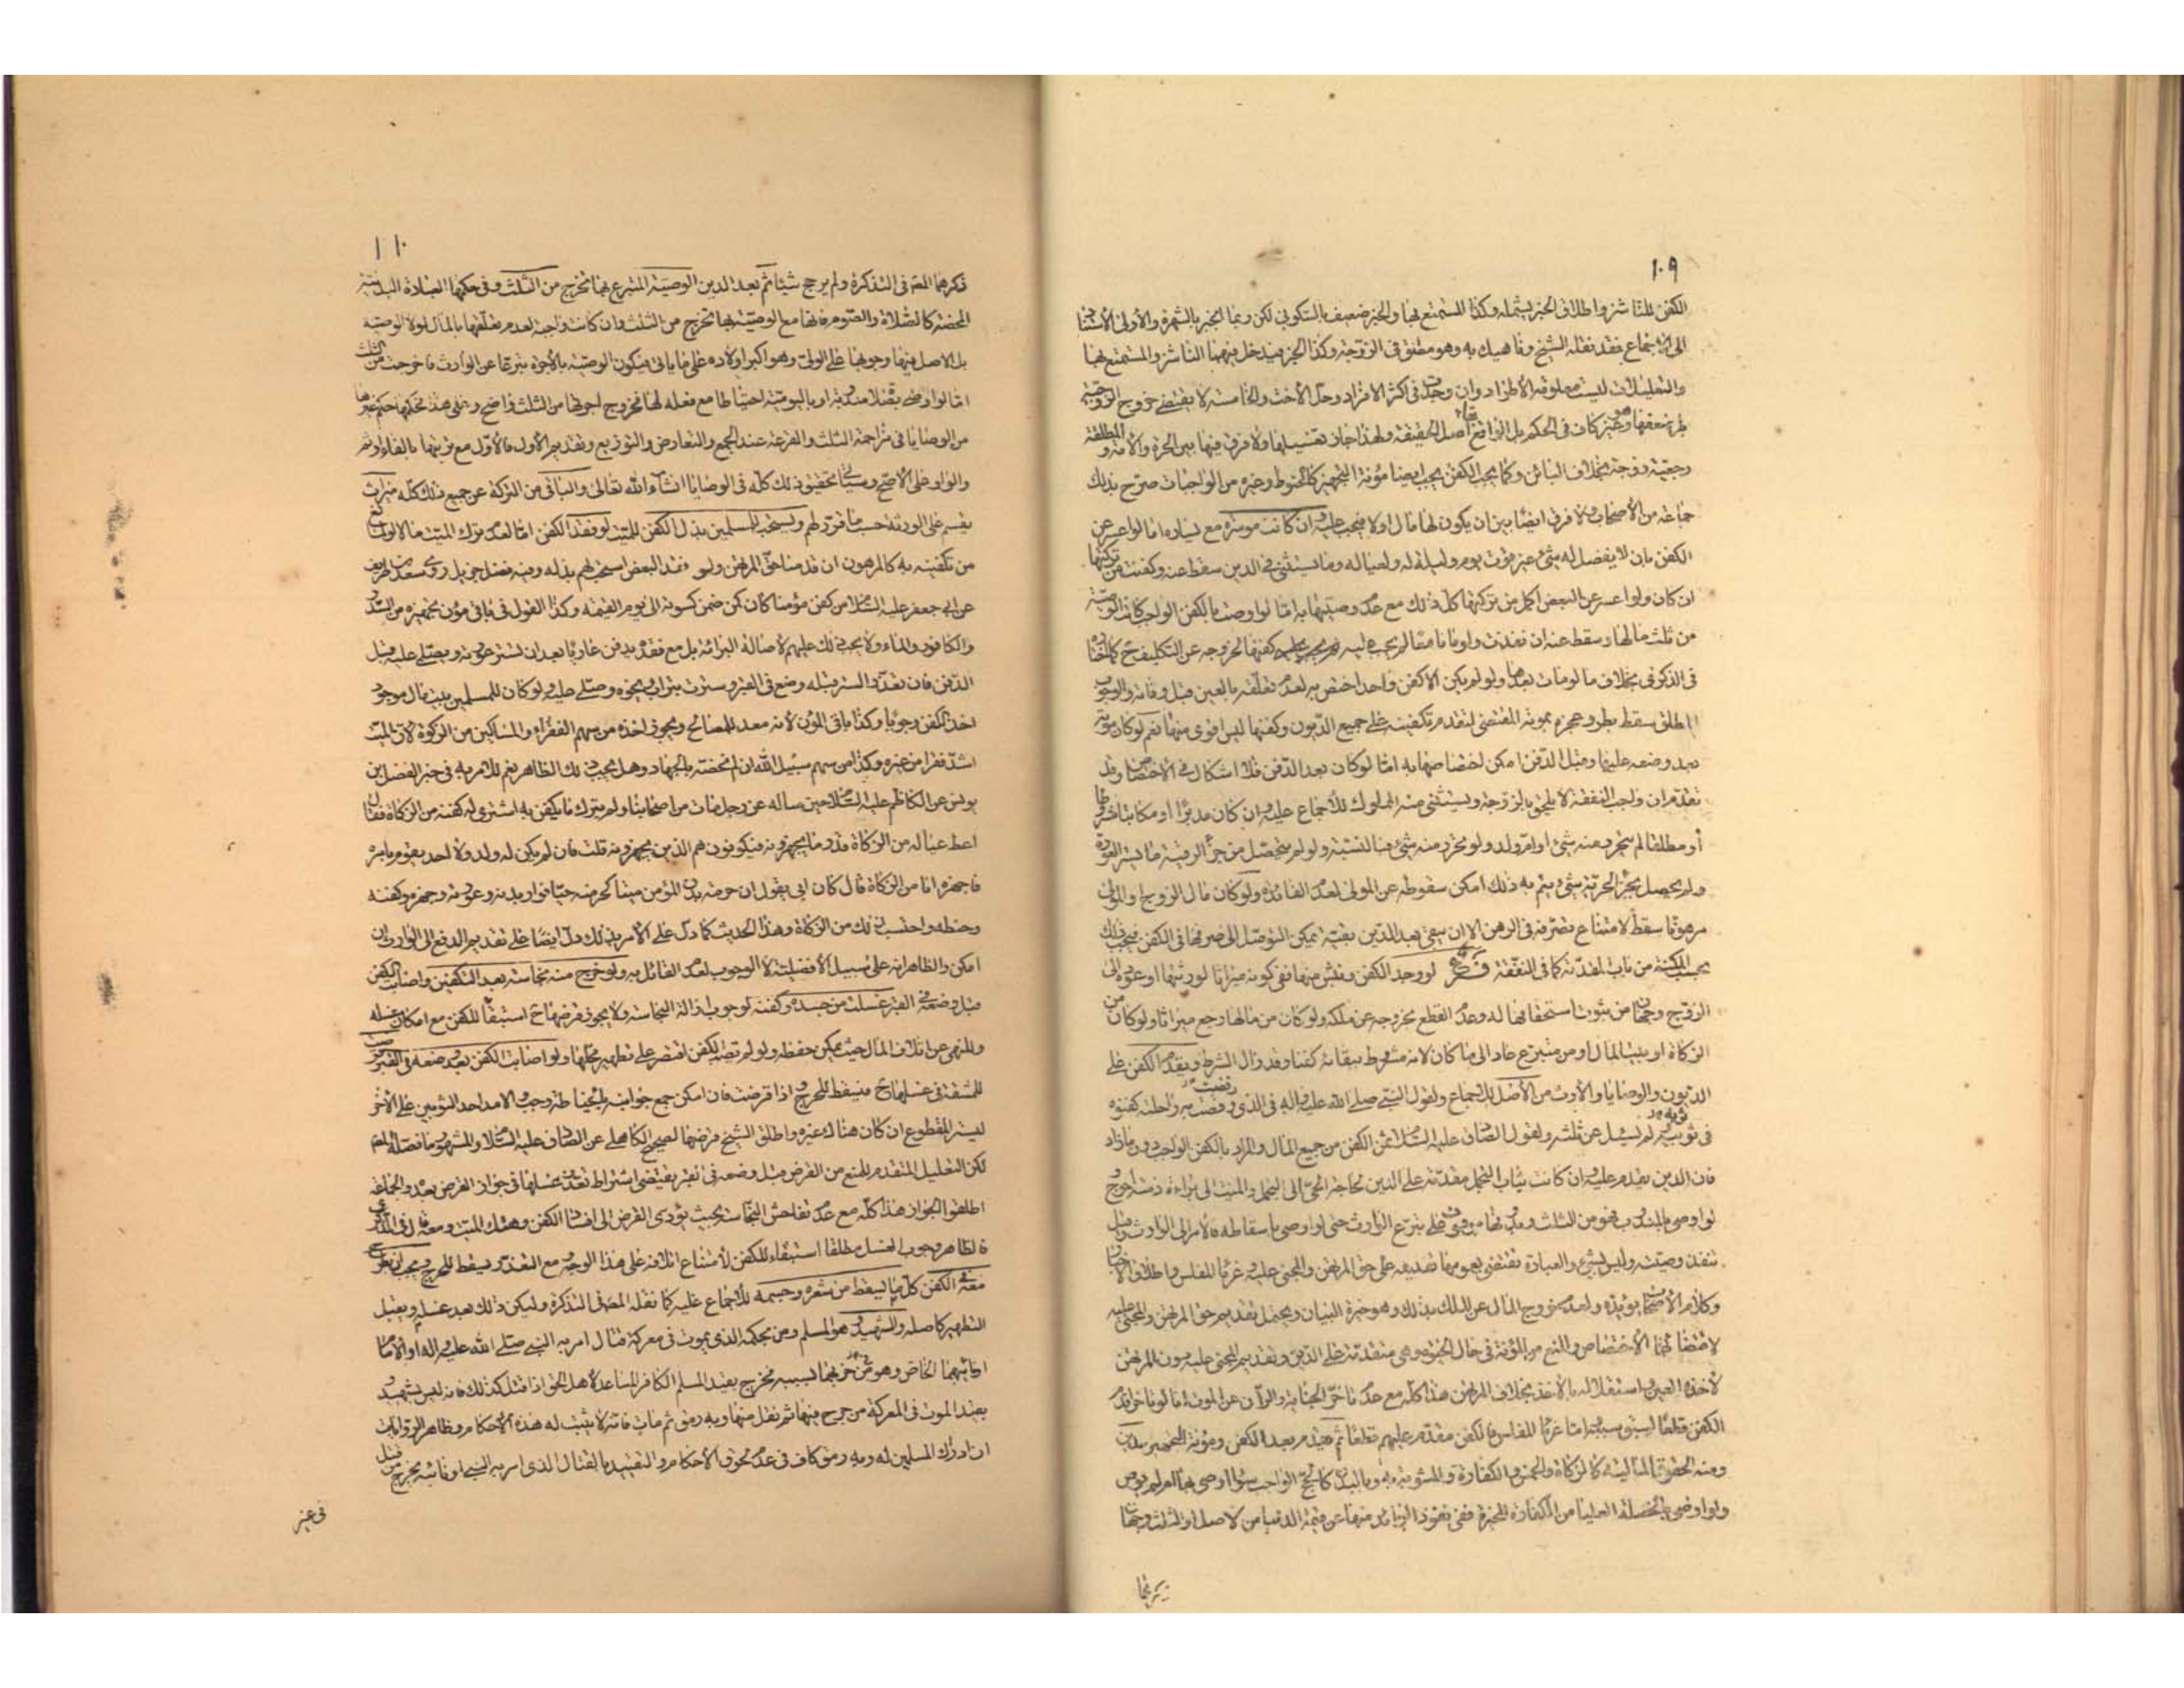 ١٠٩
الكفن للناشز واطلاق الخبر يشمله وكذا المستمتع بها والخبر ضعيف بالسكوني لكن ربما انجبر بالشهرة والأولى الاستناد
الى الاجماع فقد نقله الشيخ وناهيك به وهو مطلق في الزوجة وكذا الخبر فيدخل فيهما الناشز والمستمتع بها
والتعليلات ليست معلومة الاطراد وان وجدت في اكثر الافراد وحل الأخت والخامسة لا يقتضي خروج الزوجية
كان في الحكم بل الواقع بقاء اصل الحقيقة ولهذا جاز تغسيلها ولا فرق فيها بين الحرة والأمة والمطلقة
رجعية زوجة بخلاف البائن وكما يجب الكفن يجب ايضا مؤنة التجهيز كالحنوط وغيره من الواجبات صرح بذلك
جماعة من الأصحاب ولا فرق ايضا بين ان يكون لها مال اولا فيجب عليه وان كانت موسرة مع يساره اما لو اعسر عن
الكفن بان لا يفضل له شئ عن قوت يوم وليلة له ولعياله وما يستثنى في الدين سقط عنه وكفنت من تركتها
ان كان ولو اعسر عن البعض اكمل من تركتها كل ذلك مع عدم وصيتها به امّا لو اوصت بالكفن الواجب كانت الوصية
من ثلث مالها وسقط عنه ان نفذت ولو ماتا معًا لم يجب عليه كفنها لخروجه عن التكليف ح
بخلاف ما لو مات بعدها ولو لم يكن الا كفن واحد اختص به لعدم تعلقه بالعين قبل وفاته والوجوب
المطلق سقط بطرو عجزه بموته المقتضي لتقدم تكفينه على جميع الديون وكفنها ليس اقوى منها نعم لو كان موته
بعد وضعه عليها وقبل الدفن امكن اختصاصها به امّا لو كان بعد الدفن فلا اشكال في الاختصاص وقد
تقدم ان واجب النفقة لا يلحق بالزوجة ويستثنى منه المملوك للأجماع عليه وان كان مدبّرا او مكاتبا مشروطا
أو مطلقا لم يتحرر منه شئ او امّ ولد ولو تحرر منه شئ فبالنسبة ولو لم يتحصل من جزأ الرقية ما يستر العورة
ولم يحصل بجزء الحرية شئ ويتم به ذلك امكن سقوطه عن المولى لعدم الفائدة ولو كان مال الزوج والمولى
مرهونا سقط لامتناع تصرفه في الرهن الا ان يبقى بعد الدين بقية يمكن التوصل الى صرفها في الكفن فيجب ذلك
بحسب المكنة من باب المقدمة كما في النفقة فرع لو وجد الكفن ويئس منها ففي كونه ميراثا لورثتها او عوده الى
الزوج وجهان من ثبوت استحقاقها له وعدم القطع بخروجه عن ملكه ولو كان من مالها رجع ميراثا ولو كان من
الزكاة او بيت المال او من متبرع عاد الى ما كان لانه مشروط ببقائه كفنا وقد زال الشرط ويقدم الكفن على
الديون والوصايا والأرث من الأصل للأجماع ولقول النبي صلى الله عليه واله في الذي وقصت به راحلته كفنوه
في ثوبيه لم يسئل عن ثلثه ولقول الصادق عليه السلام ثمن الكفن من جميع المال والمراد بالكفن الواجب دون ما زاد
فان الدين يقدم عليه وان كانت ثياب التجمل مقدّمة على الدين لحاجة الحيّ الى التجمل والميت الى براءة ذمته احوج و
لو اوصى بالندب فهو من الثلث وعلى تبرع الوارث حتى لو اوصى باسقاطه فالأمر الى الوارث
تنفذ وصيته وليس بشئ والعبارة تقتضي بعمومها تقديمه على حق المرتهن والمجني عليه وغرما المفلس واطلاق الاخبار
وكلام الأصحاب يؤيده ولعدم خروج المال عن الملك بذلك وهو خيرة البيان ويحتمل تقديم حق المرتهن والمجني عليه
لاقتضائهما الأختصاص والمنع من المؤنة في حال الحيوة وهي متقدمة على الدين وتقديم المجني عليه دون المرتهن
لأخذه العين واستقلاله بالأخذ بخلاف المرتهن هذا كله مع عدم تأخر الجناية والرهن عن الموت اما لو تاخرا قدم
الكفن قطعا لسبق سببه امّا غرما المفلس فالكفن مقدم عليهم قطعا ثم يقدم بعد الكفن ومؤنة التجهيز الدين
ومنه الحقوق المالية كالزكاة والخمس والكفارة والمشوبة به وبالبدن كالحج الواجب سواء اوصى بها ام لم يوص
ولو اوصى بالخصلة العليا من الكفارة المخيرة ففي نفوذ الزائد منها عن قيمة الدنيا من الاصل او الثلث وجهان
ذكرهما
١١٠
ذكرهما المص في التذكرة ولم يرجح شيئا ثم بعد الدين الوصية المتبرع بها تخرج من الثلث وفي حكمها العبادة البدنية
المحضة كالصلاة والصوم فانها مع الوصية بها تخرج من الثلث وان كانت واجبة لعدم تعلقها بالمال لولا الوصية
بل الاصل فيها وجوبها على الولي وهو اكبر اولاده على ما يأتي فيكون الوصية بالأجرة تبرعا عن الوارث فاخرجت من الثلث
امّا لو اوصى بقضاء مندوبة او باليومية احتياطا مع فعله لها فخروج اجرتها من الثلث واضح وعلى هذا فحكمها حكم غيرها
من الوصايا في مزاحمة الثلث والقرعة عند الجمع والتعارض والتوزيع وتقديم الأول فالأول مع ترتيبها بالفاء او ثم
والواو على الأصح وسيأتي تحقيق ذلك كله في الوصايا انشاء الله تعالى والباقي من التركة عن جميع ذلك كله ميراث
يقسم على الورثة حسب ما قرر لهم ويستحب للمسلمين بذل الكفن للميت لو فقد الكفن امّا لعدم ترك الميت مالا او لمانع
من تكفينه به كالمرهون ان قدمنا حق المرتهن ولو فقد البعض استحب لهم بذله وفيه فضل جزيل روى سعد بن طريف
عن ابي جعفر عليه السلام من كفن مؤمنا كان كمن ضمن كسوته الى يوم القيمة وكذا القول في باقي مؤن تجهيزه من السدر
والكافور والماء ولا يجب ذلك عليهم لاصالة البرائة بل مع فقده يدفن عاريًا بعد ان تستر عورته ويصلى عليه قبل
الدفن فان تعذر الستر قبله وضع في القبر وسترت بتراب ونحوه وصلى عليه ولو كان للمسلمين بيت مال موجود
اخذ الكفن وجوبا وكذا باقي المؤن لأنه معد للمصالح ويجوز اخذه من سهم الفقراء والمساكين من الزكوة لان الميت
اشد فقرا من غيره وكذا من سهم سبيل الله ان لم نخصه بالجهاد وهل يجب ذلك الظاهر نعم للامر به في خبر الفضل بن
يونس عن الكاظم عليه السلام حين ساله عن رجل مات من اصحابنا ولم يترك ما يكفن به اشترى له كفنه من الزكاة فقال
اعط عياله من الزكاة قدر ما يجهزونه فيكونون هم الذين يجهزونه قلت فان لم يكن له ولد ولا احد يقوم بامره
فاجهزه انا من الزكاة قال كان ابي يقول ان حرمة بدن المؤمن ميتا كحرمته حيّا فوار بدنه وعورته وجهزه وكفنه
وحنطه واحتسب بذلك من الزكاة وهذا الحديث كما دل على الأمر بذلك دل ايضا على تقديم الدفع الى الوارث ان
امكن والظاهر انه على سبيل الأفضلية لا الوجوب لعدم القائل به ولو خرج منه نجاسة بعد التكفين واصاب الكفن
قبل وضعه في القبر غسلت من جسده وكفنه لوجوب ازالة النجاسة ولا يجوز قرضها ح استبقاً للكفن مع امكان غسله
وللنهي عن اتلاف المال حيث يمكن حفظه ولو لم تصب الكفن اقتصر على تطهير محلها ولو اصابت الكفن بعد وضعه في القبر قرضت
للمشقة في غسلها ح فيسقط للحرج واذا قرضت فان امكن جمع جوانبه بالخياطة وجب والا مد احد الثوبين على الأخر
ليستر المقطوع ان كان هناك غيره واطلق الشيخ قرضها لصحيح الكاهلي عن الصادق عليه السلام والمشهور ما فصله المص
لكن التعليل المتقدم للمنع من القرض قبل وضعه في القبر يقتضي اشتراط تعذر غسلها في جواز القرض بعده والجماعة
اطلقوا الجواز هذا كله مع عدم تفاحش النجاسة بحيث يؤدي القرض الى افساد الكفن وهتك الميت ومعه
فالظاهر وجوب الغسل مطلقا استبقاء للكفن لأمتناع اتلافه على هذا الوجه ومع التعذر يسقط للحرج ويجب ان يطرح
معه في الكفن كل ما يسقط من شعره وجسمه للأجماع عليه كما نقله المص في التذكرة وليكن ذلك بعد غسله ويقبل
التطهير كاصله والشهيد وهو المسلم ومن بحكمه الذي يموت في معركة قتال امر به النبي صلى الله عليه واله او الأمام
او نائبهما الخاص وهو من حزبهما بسببه فخرج بقيد المسلم الكافر المساعد لأهل الحق اذا قتل كذلك فانه ليس بشهيد و
بقيد الموت في المعركة من جرح فيها ثم نقل منها وبه رمق ثم مات فانه لا يثبت له هذه الأحكام وظاهر الروايات
ان ادراك المسلمين له وبه رمق كاف في عدم لحوق الأحكام والتقييد بالقتال الذي امر به النبي او نائبه يخرج من قتل
في غير